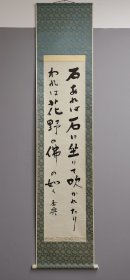 石あれば石に坐りて吹かれたり
われは花野の佛の如く